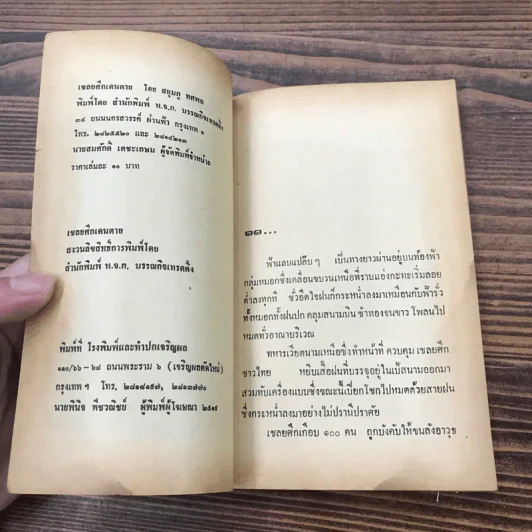 เชลยศึกเดนตาย โดย สยุมภู ทศพล
พิมพ์โดย สำนักพิมพ์ ห.จ.ก. บรรณกิจเทรดดิ้ง
๓๔ ถนนนครสวรรค์ ผ่านฟ้า กรุงเทพ ๑
โทร. ๒๘๒๕๕๒๐ และ ๒๘๑๔๒๑๓
นายสมศักดิ์ เตชะเกษม ผู้จัดพิมพ์จำหน่าย
ราคาเล่มละ ๑๐ บาท
เชลยศึกเดนตาย
สงวนลิขสิทธิ์การพิมพ์โดย
สำนักพิมพ์ ห.จ.ก. บรรณกิจเทรดดิ้ง
พิมพ์ที่ โรงพิมพ์และทำปกเจริญผล
๑๑๐/๖๖-๖๘ ถนนพระราม ๖ (เจริญผลตัดใหม่)
กรุงเทพฯ โทร.
นายพินิจ พีชวณิชย์ ผู้พิมพ์ผู้โฆษณา ๒๕๑๙
๑๑...
ฟ้าแลบแปล๊บๆ เป็นทางยาวผ่านอยู่บนท้องฟ้า
กลุ่มหมอกซึ่งเคลื่อนขบวนเหนือที่ราบแอ่งกะทะเริ่มลอย
ต่ำลงทุกที ชั่วอึดใจฝนก็กระหน่ำลงมาเหมือนกับฟ้ารั่ว
ทั้งหมอกทั้งฝนปกคลุมสนามบิน ซำทองจนขาว โพลนไป
หมดทั่วอาณาบริเวณ
ทหารเวียดนามเหนือซึ่งทำหน้าที่ ควบคุม เชลยศึก
ชาวไทย หยิบเสื้อฝนที่บรรจุอยู่ในเป้สนามออกมา
สวมทับเครื่องแบบซึ่งขณะนี้เปียกโชกไปหมดด้วยสายฝน
ซึ่งกระหน่ำลงมาอย่างไม่ปรานีปราศัย
เชลยศึกเกือบ ๑๐๐ คน ถูกบังคับให้ขนลังอาวุธ